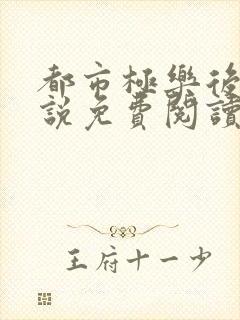 都市極樂後
說免費閱讀
王府十一少